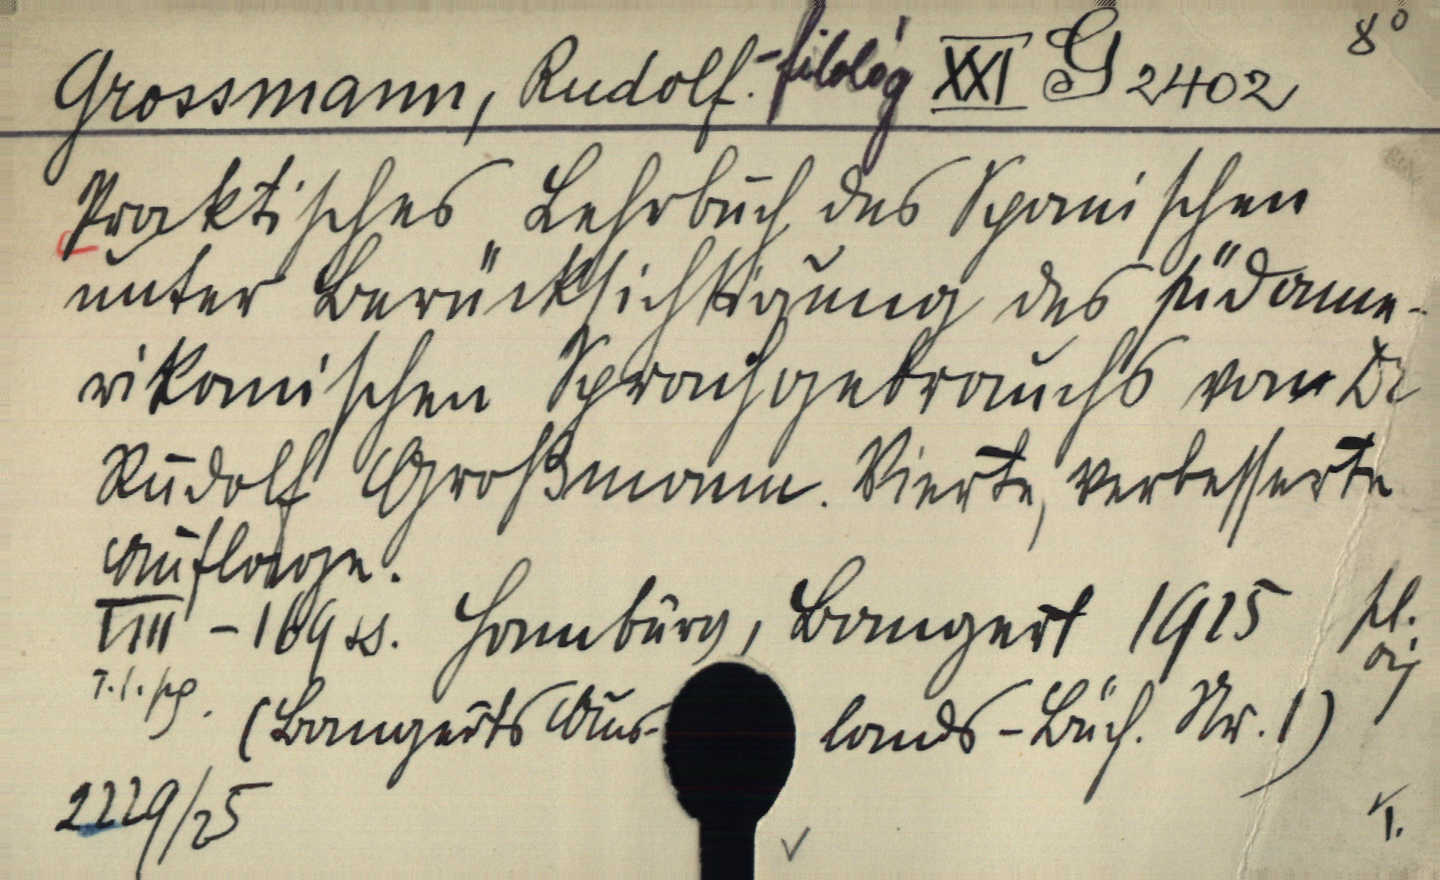 Grossmann, Rudolf.-filológ XXI G 2402 8°
Praktisches Lehrbuch des Spanischen
unter Berücksichtigung des südame-
rikanischen Sprachgebrauchs von Dr
Rudolf Großmann. Vierte, verbesserte
Auflage.
VIII - 169 ss. Hamburg, Bangert 1925
(Bangerts Aus- lands-Büch. Nr. 1)
2229/25